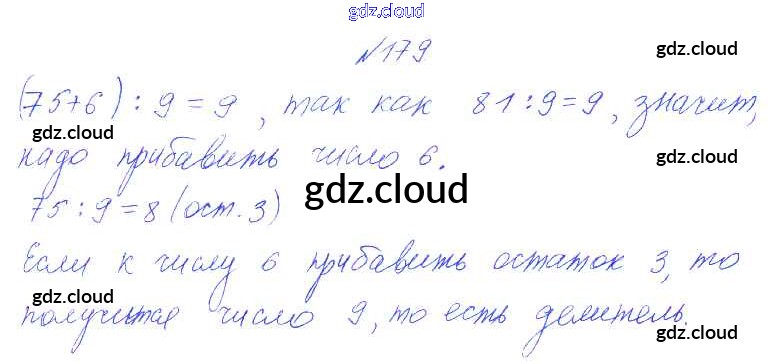 gdz.cloud
№179
gdz.cloud
(75+6) : 9 = 9, так как 81 : 9 = 9, значит,
gdz.cloud
надо прибавить число 6.
gdz.cloud
75 : 9 = 8 (ост. 3)
gdz.cloud
Если к числу 6 прибавить остаток 3, то
gdz.cloud
получится число 9, то есть делитель.
gdz.cloud